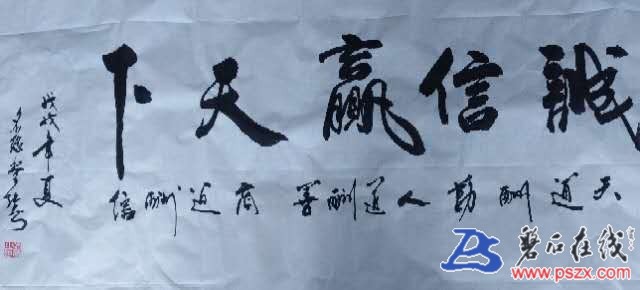 誠信贏天下
天道酬勤人道酬善商道酬信
戊戌年夏
磐石在线
www.pszx.com